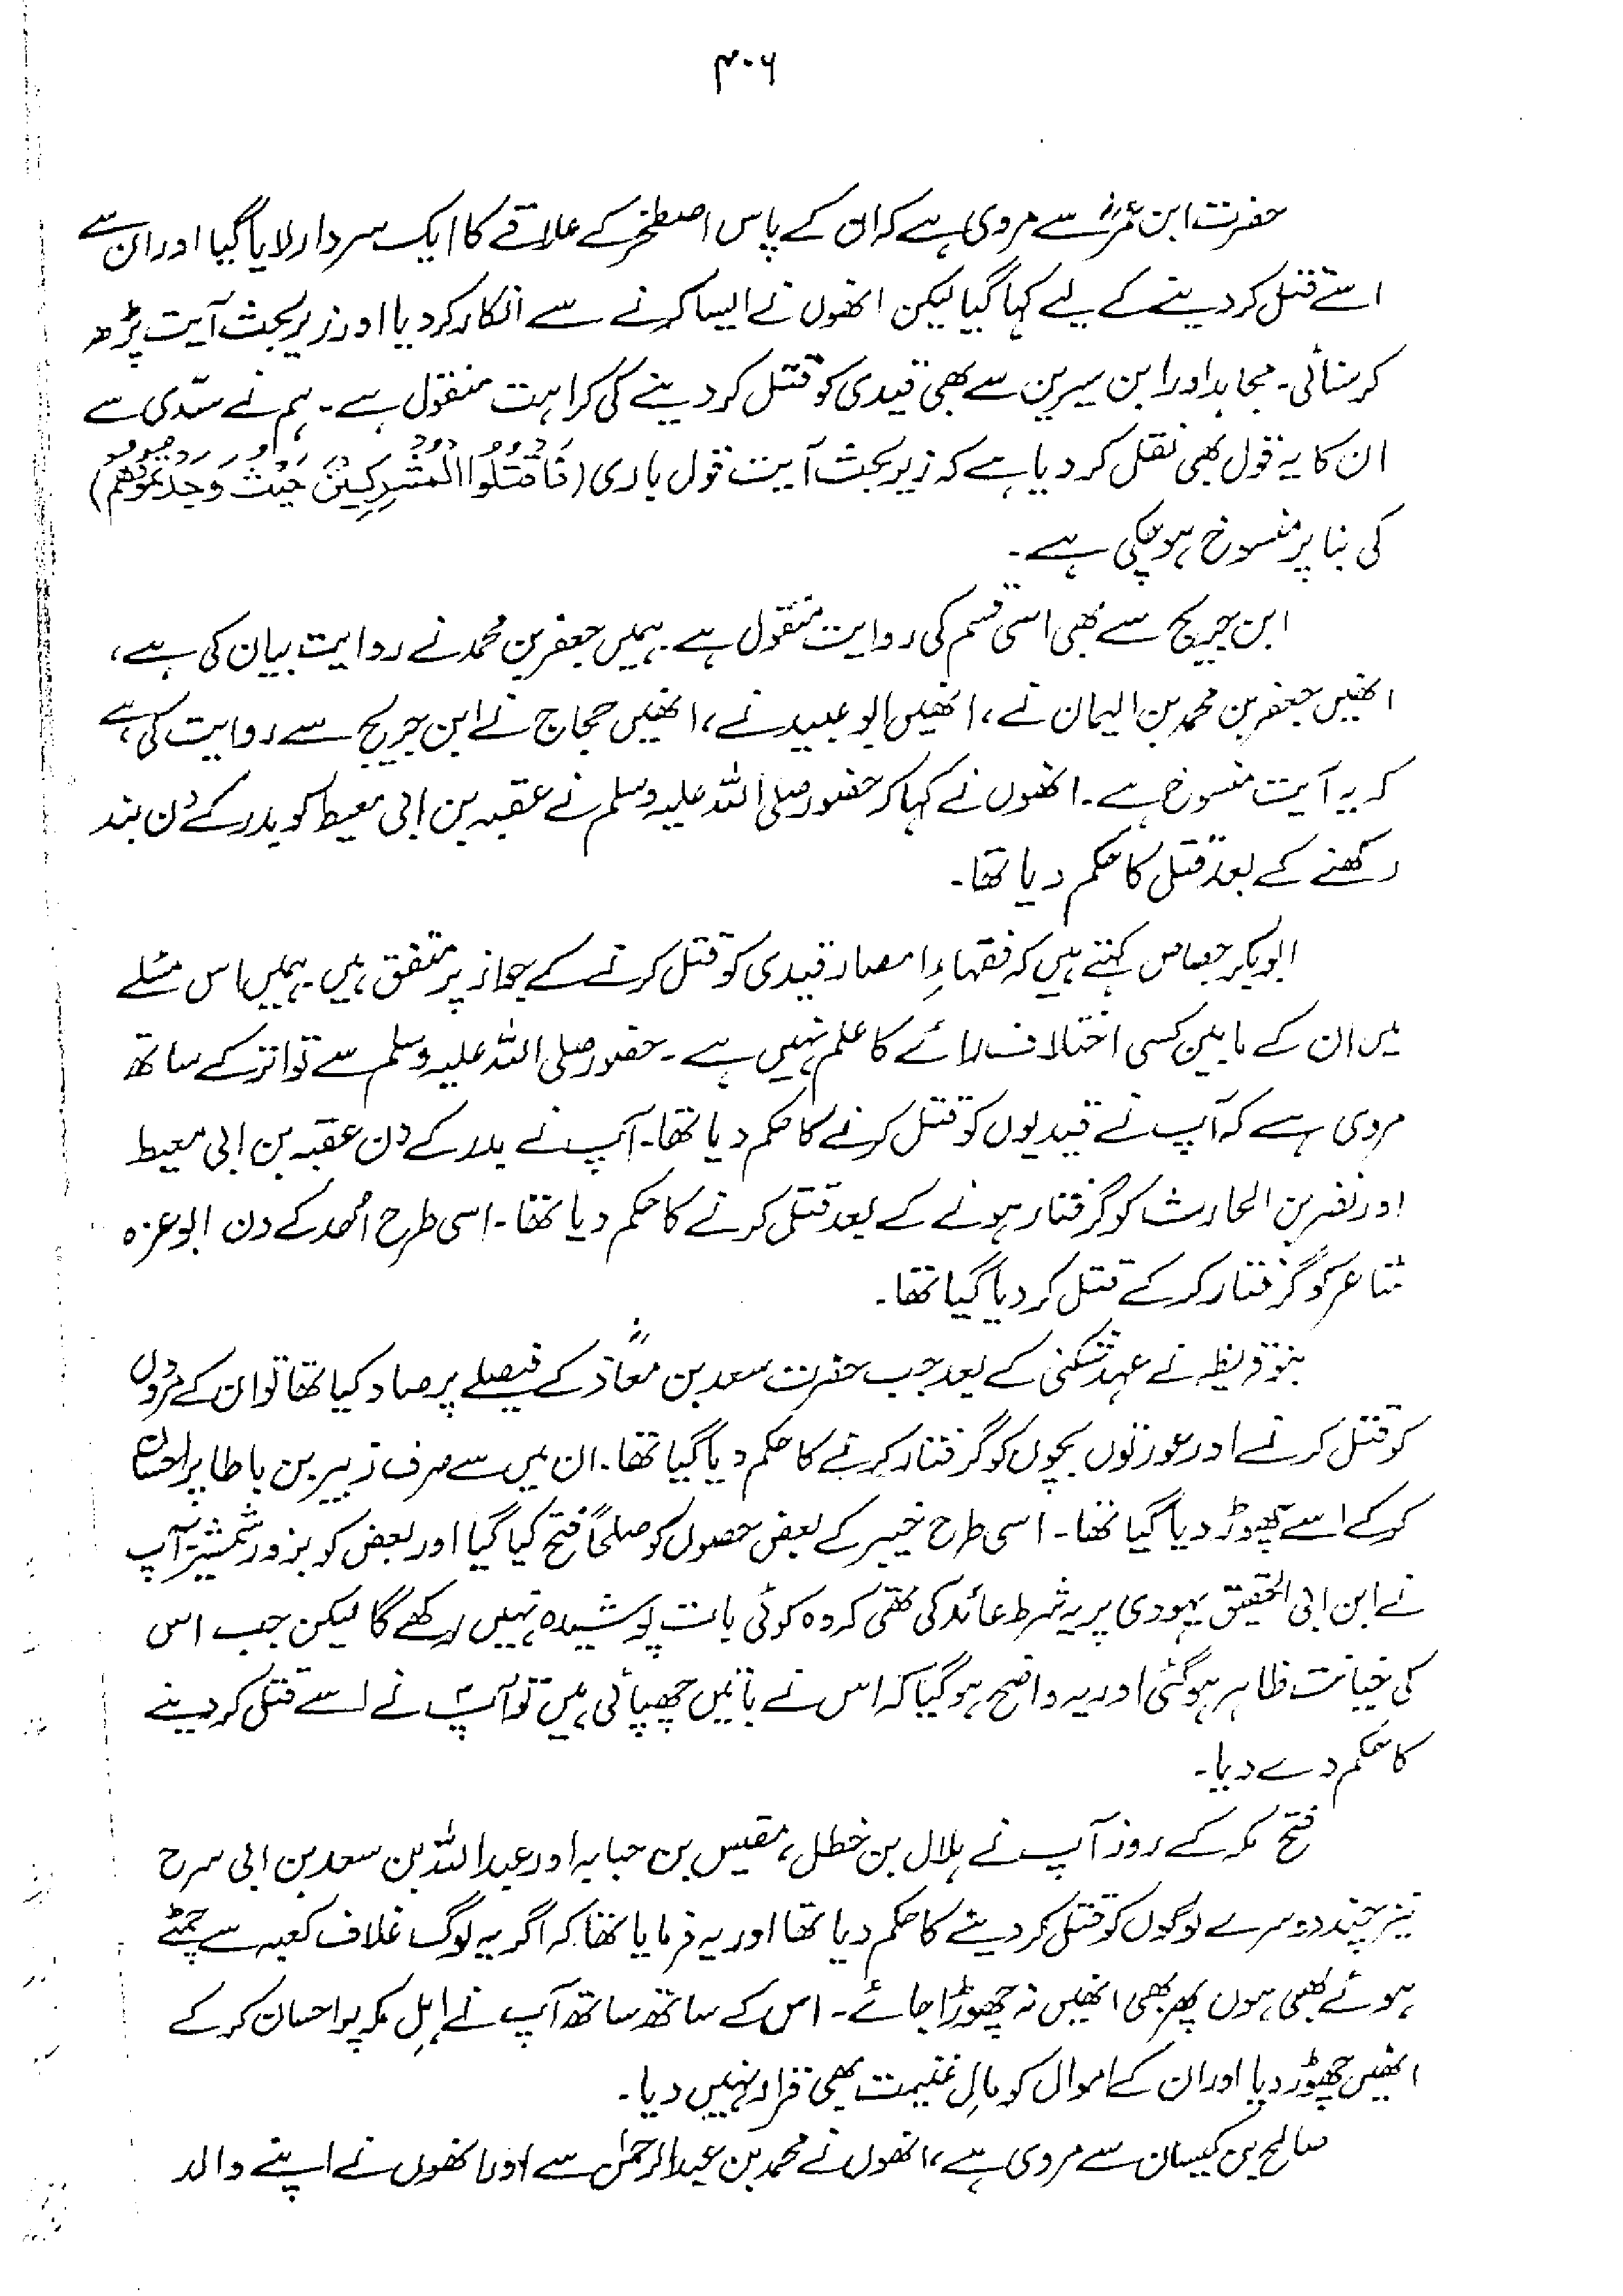 ۴۰۶
حضرت ابن عمرؓ سے مروی ہے کہ ان کے پاس اصطخر کے علاقے کا ایک سردار لایا گیا اور ان سے
اسے قتل کر دینے کے لیے کہا گیا لیکن انھوں نے ایسا کرنے سے انکار کر دیا اور زیر بحث آیت پڑھ
کر سنائی۔ مجاہد اور ابن سیرین سے بھی قیدی کو قتل کر دینے کی کراہت منقول ہے۔ ہم نے سدّی سے
ان کا یہ قول بھی نقل کر دیا ہے کہ زیر بحث آیت قول باری (فَاقْتُلُوا الْمُشْرِكِيْنَ حَيْثُ وَجَدْتُّمُوْهُمْ)
کی بنا پر منسوخ ہو چکی ہے۔
ابن جریج سے بھی اسی قسم کی روایت منقول ہے۔ ہمیں جعفر بن محمد نے روایت بیان کی ہے،
انھیں جعفر بن محمد بن الیمان نے، انھیں ابو عبید نے، انھیں حجاج نے ابن جریج سے روایت کی ہے
کہ یہ آیت منسوخ ہے۔ انھوں نے کہا کہ حضور صلی اللہ علیہ وسلم نے عقبہ بن ابی معیط کو بدر کے دن بند
رکھنے کے بعد قتل کا حکم دیا تھا۔
ابوبکر جصاص کہتے ہیں کہ فقہاءِ امصار قیدی کو قتل کرنے کے جواز پر متفق ہیں۔ ہمیں اس مسئلے
میں ان کے مابین کسی اختلاف رائے کا علم نہیں ہے۔ حضور صلی اللہ علیہ وسلم سے تواتر کے ساتھ
مروی ہے کہ آپ نے قیدیوں کو قتل کرنے کا حکم دیا تھا۔ آپ نے بدر کے دن عقبہ بن ابی معیط
اور نضر بن الحارث کو گرفتار ہونے کے بعد قتل کرنے کا حکم دیا تھا۔ اسی طرح احد کے دن ابو عزہ
شاعر کو گرفتار کر کے قتل کر دیا گیا تھا۔
بنو قریظہ نے عہد شکنی کے بعد جب حضرت سعد بن معاذؓ کے فیصلے پر صاد کیا تھا تو ان کے مردوں
کو قتل کرنے اور عورتوں بچوں کو گرفتار کرنے کا حکم دیا گیا تھا۔ ان میں سے صرف زبیر بن باطا پر احسان
کر کے اسے چھوڑ دیا گیا تھا۔ اسی طرح خیبر کے بعض حصوں کو صلحاً فتح کیا گیا اور بعض کو بزور شمشیر۔ آپ
نے ابن ابی الحقیق یہودی پر یہ شرط عائد کی تھی کہ وہ کوئی بات پوشیدہ نہیں رکھے گا لیکن جب اس
کی خیانت ظاہر ہو گئی اور یہ واضح ہو گیا کہ اس نے باتیں چھپائی ہیں تو آپؐ نے اسے قتل کر دینے
کا حکم دے دیا۔
فتح مکہ کے روز آپ نے ہلال بن خطل، مقیس بن حبابہ اور عبد اللہ بن سعد بن ابی سرح
نیز چند دوسرے لوگوں کو قتل کر دینے کا حکم دیا تھا اور یہ فرمایا تھا کہ اگر یہ لوگ غلاف کعبہ سے چمٹے
ہوئے بھی ہوں پھر بھی انھیں نہ چھوڑا جائے۔ اس کے ساتھ ساتھ آپ نے اہلِ مکہ پر احسان کر کے
انھیں چھوڑ دیا اور ان کے اموال کو مالِ غنیمت بھی قرار نہیں دیا۔
صالح بن کیسان سے مروی ہے، انھوں نے محمد بن عبدالرحمٰن سے اور انھوں نے اپنے والد